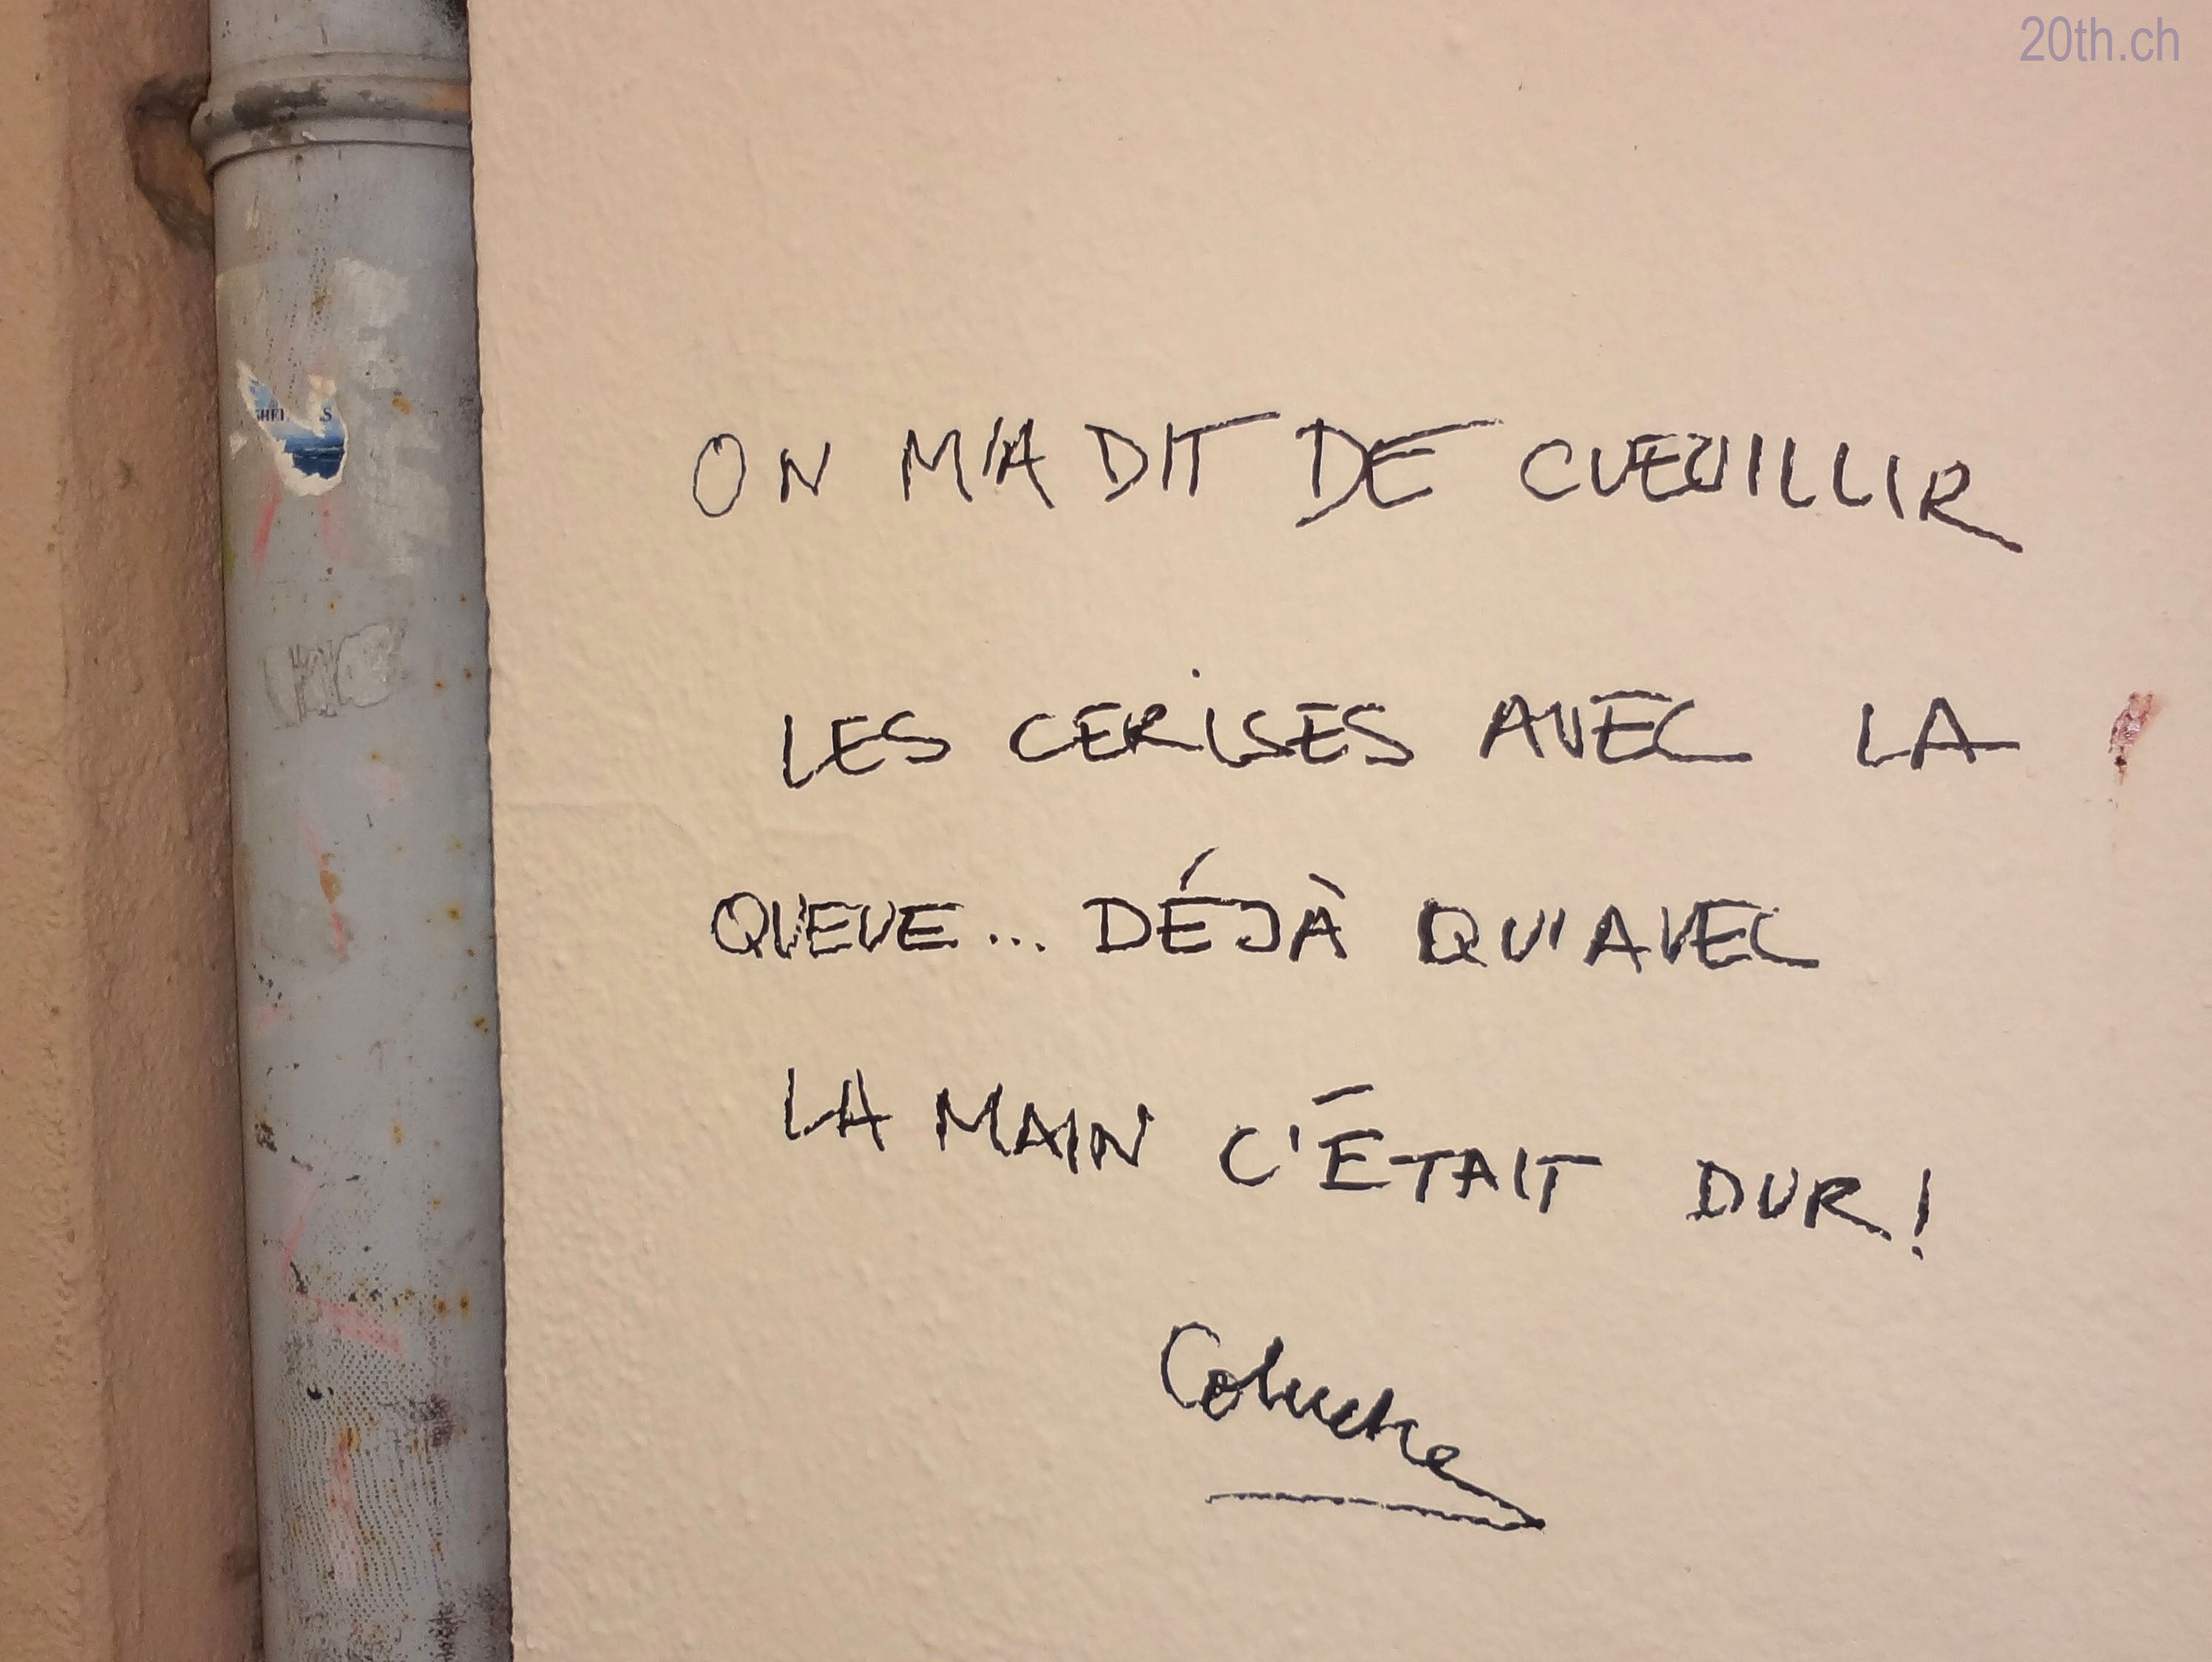 20th.ch
ON M'A DIT DE CUEUILLIR
LES CERISES AVEC LA
QUEUE... DÉJÀ QU'AVEC
LA MAIN C'ÉTAIT DUR!
Coluche